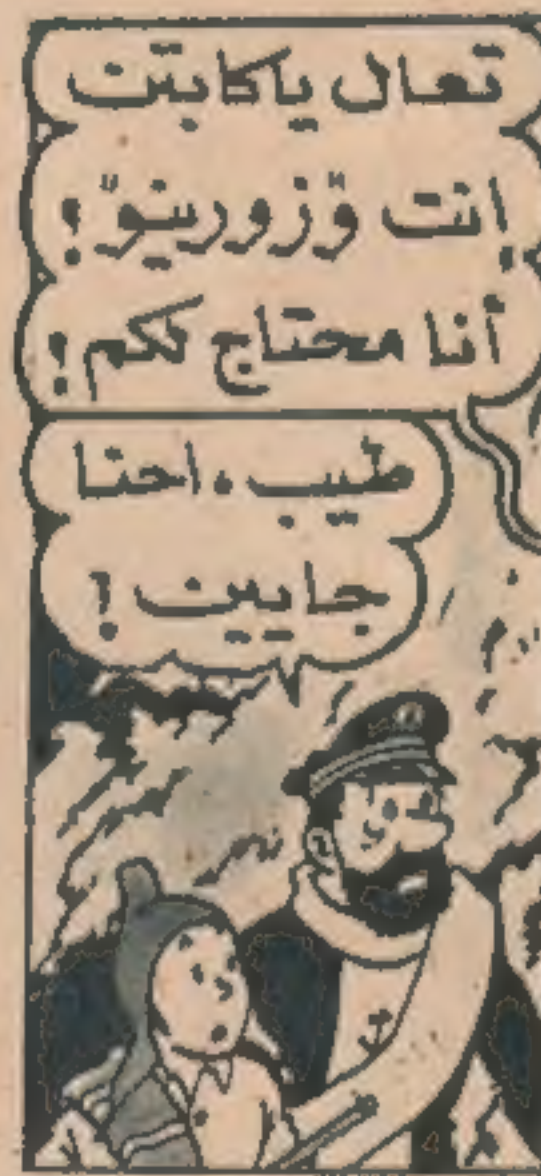 تعال ياكابتن
إنت و"زورينو"!
أنا محتاج لكم!
طيب، احنا
جايين!